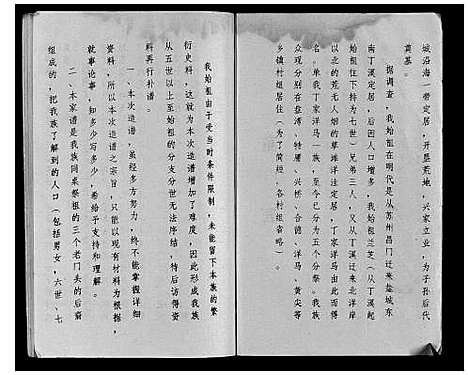 城沿海一带定居，开垦荒地，兴家立业，为子孙后代
奠基。
据调查，我始祖在明代是从苏州昌门迁来盐城东
南丁溪定居，后因人口增多，我始祖兰芝（从丁溪起
始祖往下持为七世）兄弟三人，又从丁溪迁来北洋岸
以北的荒无人烟的草滩洋注定居，丁家洋马由此而得
名。单我丁家洋马一族，至今已分为五个分祭。我族
众现分别在盘湾、特庸、兴桥、合德、洋马、黄尖等
乡镇村组居住（为了简短，各村组省略）。
我始祖由于受当时条件限制，未能留下本族的繁
衍史料，这就为本次造谱增加了难度，因此形成我族
从五世以上至始祖的分支分世无法序结，待后访得资
料再行补谱。
一、本次造谱，虽经多方努力，终不能掌握详细
资料，所以本次造谱之宗旨，只能以现有材料为根据，
就事论事，知多少写多少，希给予支持和理解。
二、本家谱是我族同桌祭祖的三个老门头的后裔
组成的，把我族了解到的人口（包括男女，六世、七